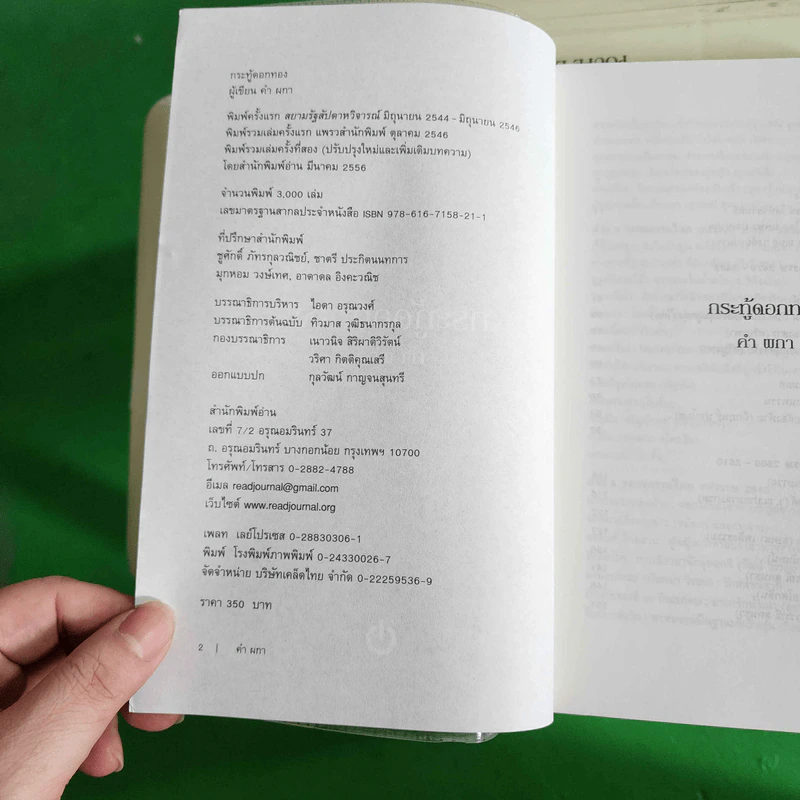 กระทู้ดอกทอง
ผู้เขียน คำ ผกา
พิมพ์ครั้งแรก สยามรัฐสัปดาหวิจารณ์ มิถุนายน 2544 - มิถุนายน 2546
พิมพ์รวมเล่มครั้งแรก แพรวสำนักพิมพ์ ตุลาคม 2546
พิมพ์รวมเล่มครั้งที่สอง (ปรับปรุงใหม่และเพิ่มเติมบทความ)
โดยสำนักพิมพ์อ่าน มีนาคม 2556
จำนวนพิมพ์ 3,000 เล่ม
เลขมาตรฐานสากลประจำหนังสือ ISBN 978-616-7158-21-1
ที่ปรึกษาสำนักพิมพ์
ชูศักดิ์ ภัทรกุลวณิชย์, ชาตรี ประกิตนนทการ
มุกหอม วงษ์เทศ, อาดาดล อิงคะวณิช
บรรณาธิการบริหาร ไอดา อรุณวงศ์
บรรณาธิการต้นฉบับ ทิวมาส วุฒิธนากรกุล
กองบรรณาธิการ เนาวนิจ สิริผาติวิรัตน์
วริศา กิตติคุณเสรี
ออกแบบปก กุลวัฒน์ กาญจนสุนทรี
สำนักพิมพ์อ่าน
เลขที่ 7/2 อรุณอมรินทร์ 37
ถ. อรุณอมรินทร์ บางกอกน้อย กรุงเทพฯ 10700
โทรศัพท์/โทรสาร 0-2882-4788
อีเมล readjournal@gmail.com
เว็บไซต์ www.readjournal.org
เพลท เลย์โปรเซส 0-28830306-1
พิมพ์ โรงพิมพ์ภาพพิมพ์ 0-24330026-7
จัดจำหน่าย บริษัทเคล็ดไทย จำกัด 0-22259536-9
ราคา 350 บาท
2 | คำ ผกา
กระทู้ดอกท
คำ ผกา